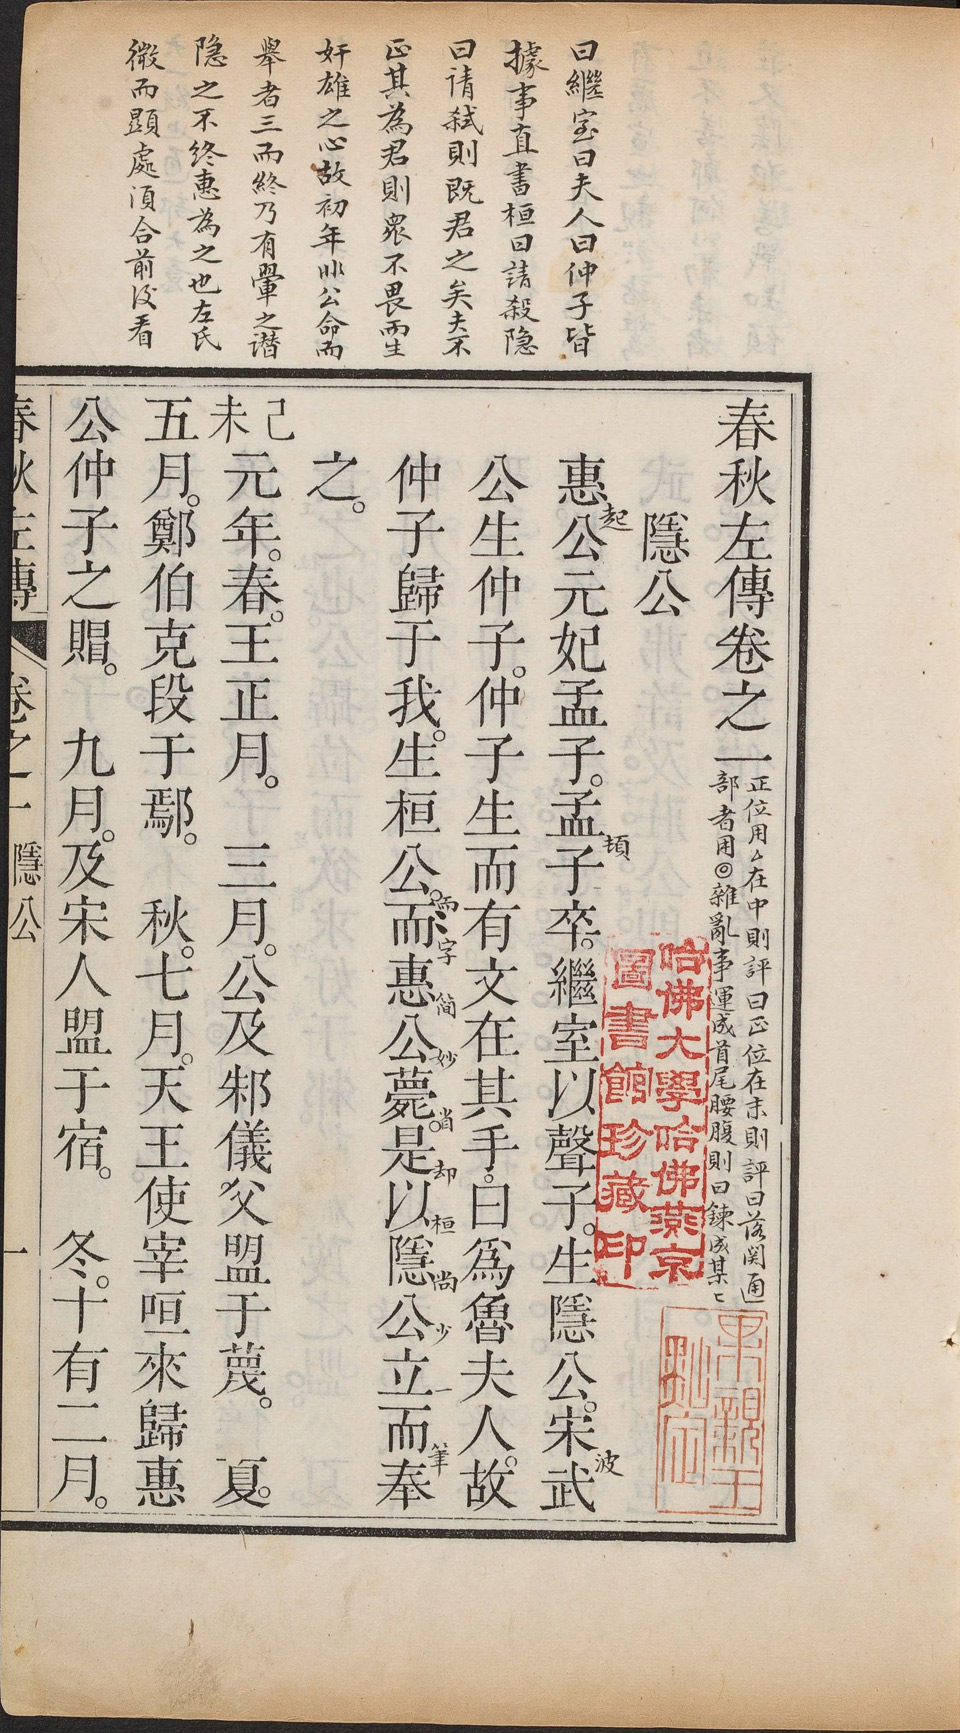 曰繼室曰夫人曰仲子皆
據事直書桓曰請殺隐
曰请弑則既君之矣夫不
正其為君則衆不畏而生
奸雄之心故初年非公命而
舉者三而終乃有翬之谮
隐之不终惠為之也左氏
微而顯處須合前後看
春秋左傳卷之一
正位用△在中則評曰正位在末則評曰落関通
部者用◎雜亂事運成首尾腰腹則曰鍊成某〻
隱公
惠公元妃孟子。孟子卒。繼室以聲子。生隱公。宋武
起
頓
波
公生仲子。仲子生而有文在其手。曰爲魯夫人。故
仲子歸于我。生桓公。而惠公薨。是以隱公立而奉
而字简妙省却桓尚少一筆
之。
己未
元年。春。王正月。 三月。公及邾儀父盟于蔑。 夏。
五月。鄭伯克段于鄢。 秋。七月。天王使宰咺來歸惠
公仲子之賵。 九月。及宋人盟于宿。 冬。十有二月。
春秋左傳 卷之一 隱公 一
哈佛大學哈佛燕京
圖書館珍藏印